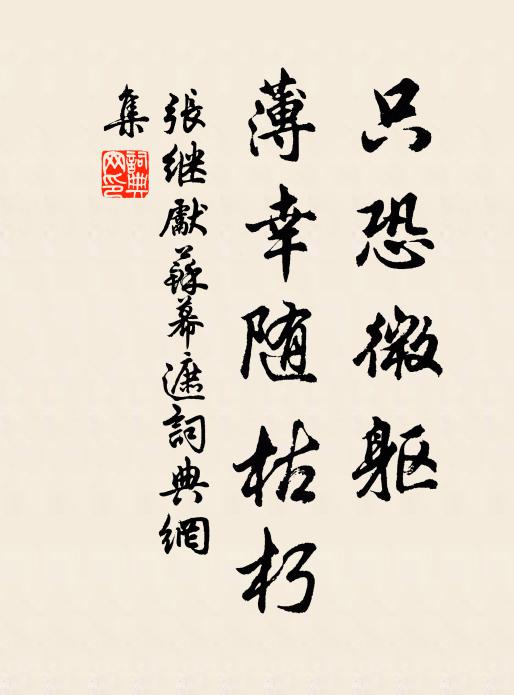 只恐微躯
薄幸随枯朽
張继獻蘇幕遮詞典網
集
詞典
网印